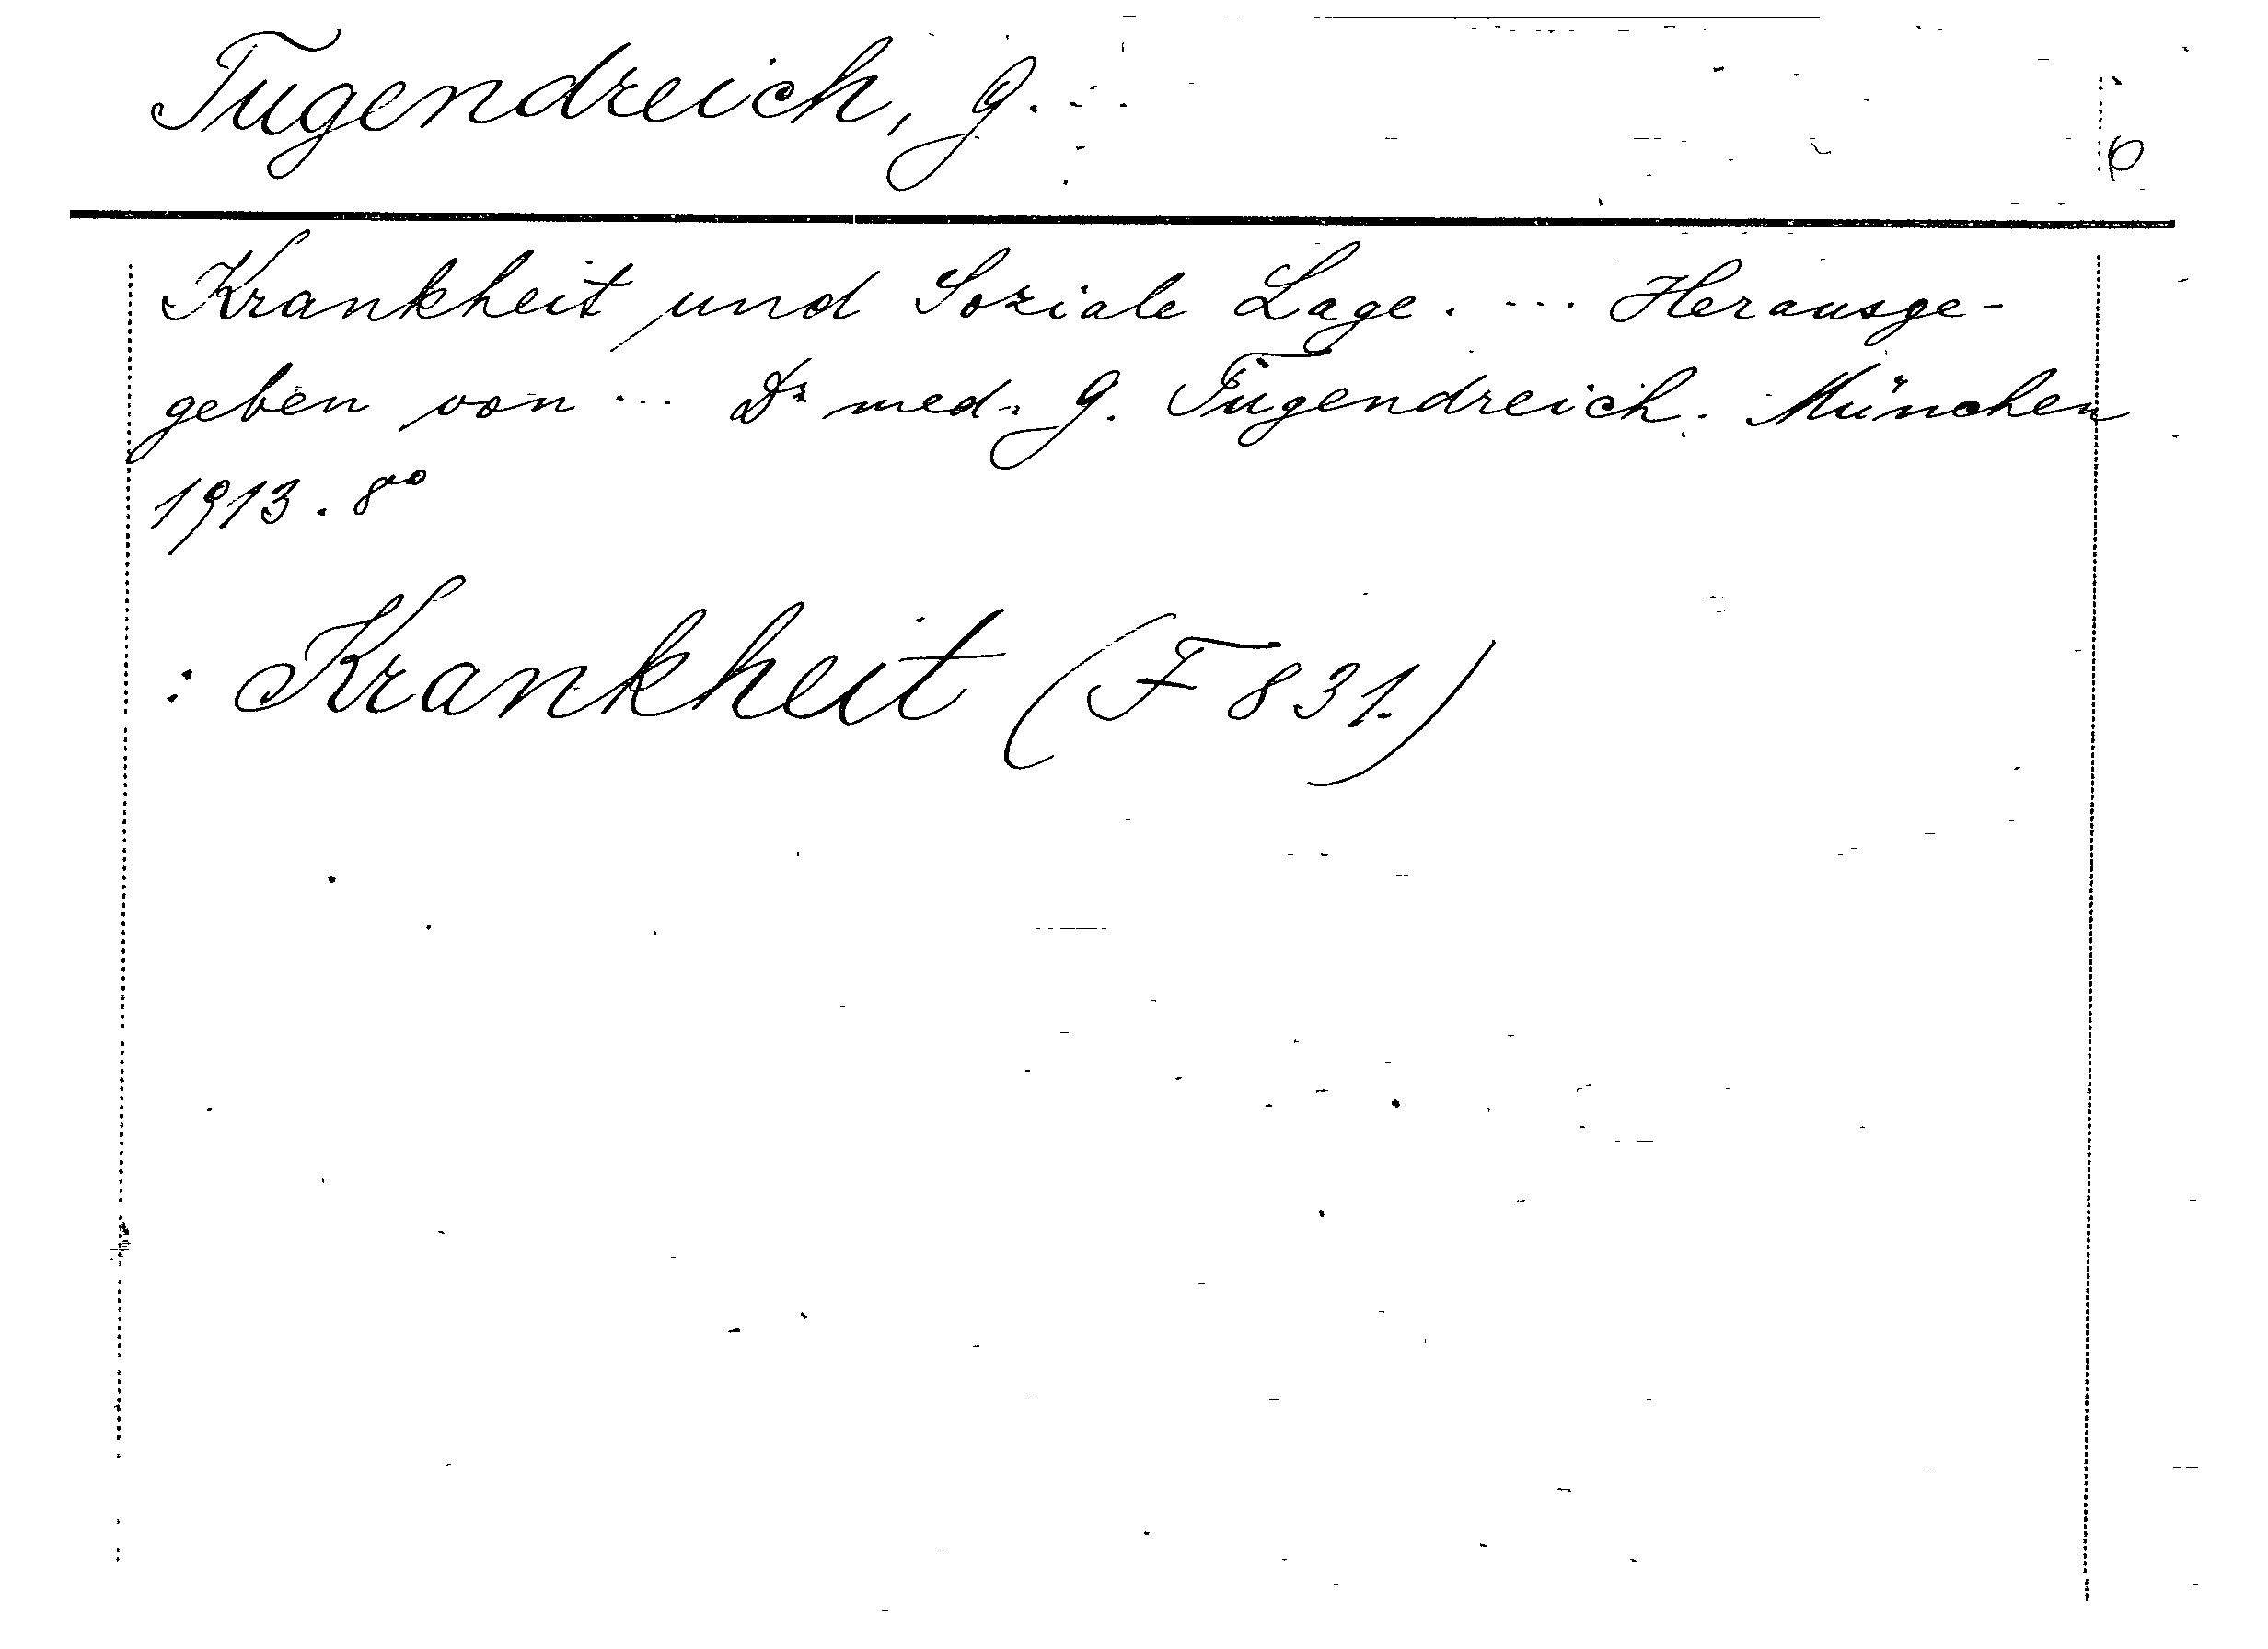 Tugendreich, G.
Krankheit und Soziale Lage. ... Herausge-
geben von ... Dr med. G. Tugendreich. München
1913. 8vo
: Krankheit (F 831.)